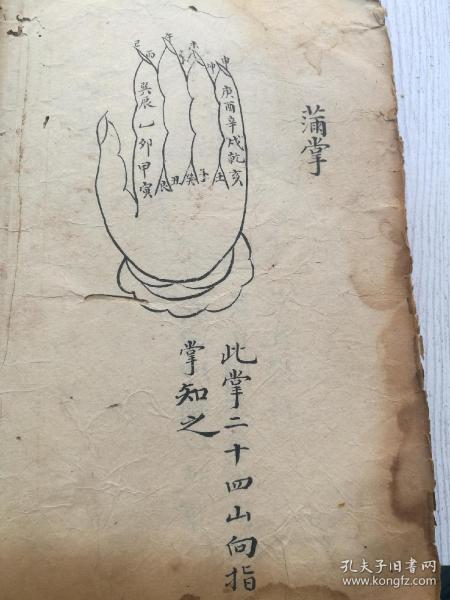 蒲掌
巳丙午丁未坤申
庚酉辛戌乾亥
巽辰乙卯甲寅
艮丑癸子壬
此掌二十四山向指
掌知之
孔夫子旧书网
www.kongfz.com